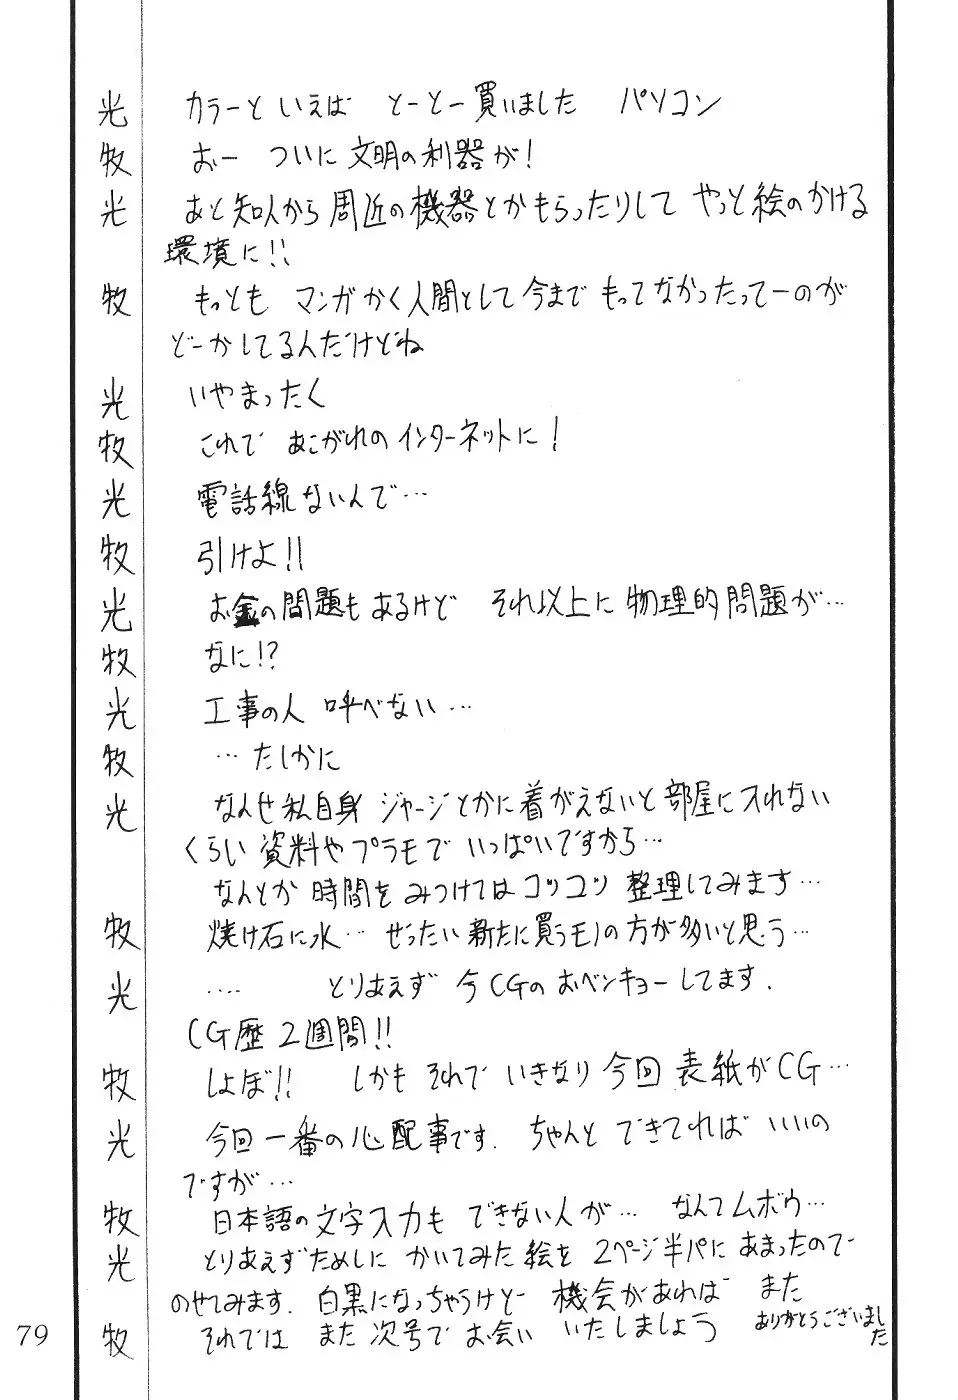 光 カラーといえば とーとー買いました パソコン
牧 おー ついに文明の利器が!
光 あと知人から周辺の機器とかもらったりして やっと絵のかける
環境に!!
牧 もっとも マンガかく人間として今まで もってなかったってーのが
どーかしてるんだけどね
光 いやまったく
牧 これで あこがれのインターネットに!
光 電話線ないんで…
牧 引けよ!!
光 お金の問題もあるけど それ以上に物理的問題が…
牧 なに!?
光 工事の人 呼べない…
牧 …たしかに
光 なんせ私自身 ジャージとかに着がえないと部屋に入れない
くらい資料やプラモで いっぱいですから…
なんとか時間をみつけてはコツコツ整理してみます…
牧 焼け石に水… ぜったい新たに買うモノの方が多いと思う…
光 .... とりあえず 今CGのおベンキョーしてます.
CG歴2週間!!
牧 しょぼ!! しかも それで いきなり今回 表紙がCG…
光 今回一番の心配事です. ちゃんと できてれば いいの
ですが…
牧 日本語の文字入力も できない人が… なんてムボウ…
光 とりあえずためしに かいてみた絵を 2ページ半パにあまったので
のせてみます. 白黒になっちゃうけどー 機会があれば また
牧 それでは また次号で お会い いたしましょう ありがとうございました
79